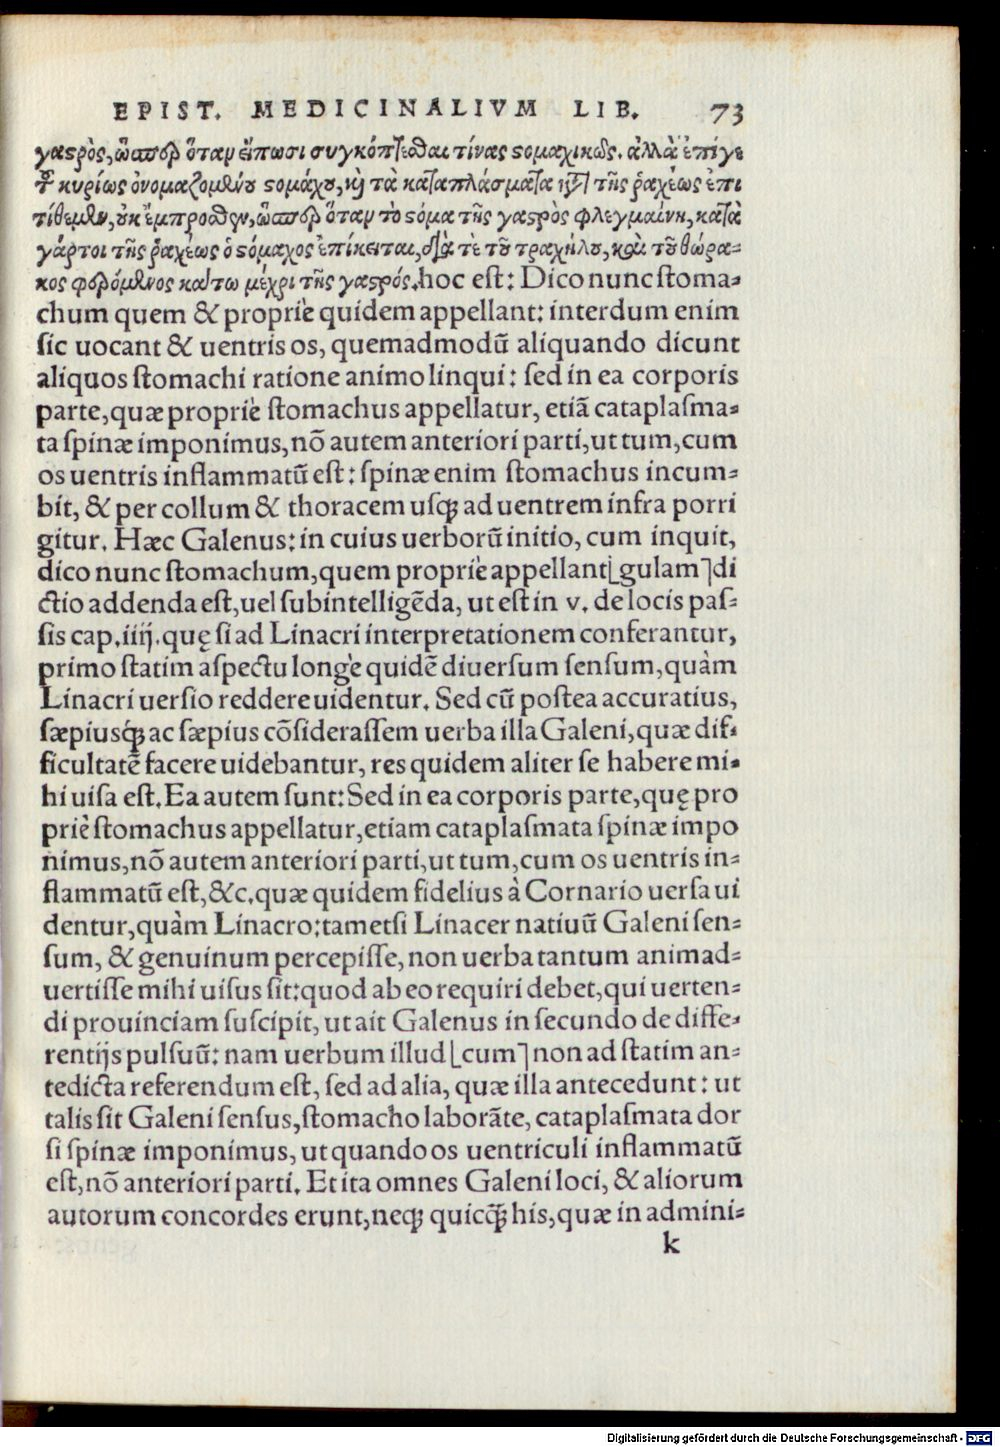 EPIST. MEDICINALIVM LIB. 73
γαςρὸς, ὥσπερ ὅταν εἴπωσι συγκόπτεσθαι τίνας ςομαχικῶς. ἀλλὰ ἐπίγε
τ͂ κυρίως ὀνομαζομένου ςομάχου, κὶ τὰ καταπλάσματα τῆς ῥαχέως ἐπι
τίθεμεν, οὐκ ἔμπροσθεν, ὥσπερ ὅταν τὸ ςόμα τῆς γαςρὸς φλεγμαίνη, κατὰ
γάρτοι τῆς ῥαχέως ὁ ςόμαχος ἐπίκειται, διὰ τὲ τοῦ τραχήλου, καὶ τοῦ θώρα=
κος φερόμενος κάτω μέχρι τῆς γαςρός. hoc est: Dico nunc stoma=
chum quem & propriè quidem appellant: interdum enim
sic uocant & uentris os, quemadmodũ aliquando dicunt
aliquos stomachi ratione animo linqui: sed in ea corporis
parte, quæ propriè stomachus appellatur, etiã cataplasma=
ta spinæ imponimus, nõ autem anteriori parti, ut tum, cum
os uentris inflammatũ est: spinæ enim stomachus incum=
bit, & per collum & thoracem usq; ad uentrem infra porri
gitur. Hæc Galenus: in cuius uerborũ initio, cum inquit,
dico nunc stomachum, quem propriè appellant⌊gulam⌉di
ctio addenda est, uel subintelligẽda, ut est in v. de locis pas=
sis cap. iiij. quę si ad Linacri interpretationem conferantur,
primo statim aspectu longè quidẽ diuersum sensum, quàm
Linacri uersio reddere uidentur. Sed cũ postea accuratius,
sæpiusq́; ac sæpius cõsiderassem uerba illa Galeni, quæ dif=
ficultatẽ facere uidebantur, res quidem aliter se habere mi=
hi uisa est. Ea autem sunt: Sed in ea corporis parte, quę pro
priè stomachus appellatur, etiam cataplasmata spinæ impo
nimus, nõ autem anteriori parti, ut tum, cum os uentris in=
flammatũ est, &c. quæ quidem fidelius à Cornario uersa ui
dentur, quàm Linacro: tametsi Linacer natiuũ Galeni sen=
sum, & genuinum percepisse, non uerba tantum animad=
uertisse mihi uisus sit: quod ab eo requiri debet, qui uerten=
di prouinciam suscipit, ut ait Galenus in secundo de diffe=
rentijs pulsuũ: nam uerbum illud⌊cum⌉non ad statim an=
tedicta referendum est, sed ad alia, quæ illa antecedunt: ut
talis sit Galeni sensus, stomacho laborãte, cataplasmata dor
si spinæ imponimus, ut quando os uentriculi inflammatũ
est, nõ anteriori parti. Et ita omnes Galeni loci, & aliorum
autorum concordes erunt, neq; quicq̃; his, quæ in admini=
k
Digitalisierung gefördert durch die Deutsche Forschungsgemeinschaft - DFG